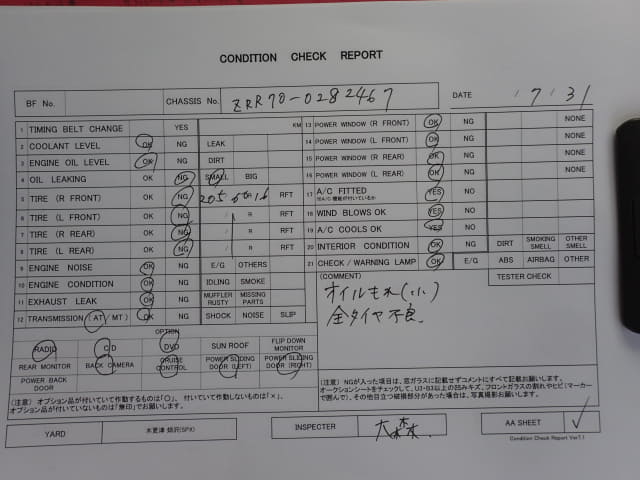 CONDITION CHECK REPORT
BF No. CHASSIS No. ZRR70-0282467 DATE / 7 / 31
1 TIMING BELT CHANGE YES KM
2 COOLANT LEVEL OK NG LEAK
3 ENGINE OIL LEVEL OK NG DIRT
4 OIL LEAKING OK NG SMALL BIG
5 TIRE (R FRONT) OK NG 205 / 60 R 16 RFT
6 TIRE (L FRONT) OK NG / R RFT
7 TIRE (R REAR) OK NG / R RFT
8 TIRE (L REAR) OK NG / R RFT
9 ENGINE NOISE OK NG E/G OTHERS
10 ENGINE CONDITION OK NG IDLING SMOKE
11 EXHAUST LEAK OK NG MUFFLER RUSTY MISSING PARTS
12 TRANSMISSION (AT/MT) OK NG SHOCK NOISE SLIP
OPTION
RADIO CD DVD SUN ROOF FLIP DOWN MONITOR
REAR MONITOR BACK CAMERA CRUISE CONTROL POWER SLIDING DOOR (LEFT) POWER SLIDING DOOR (RIGHT)
POWER BACK DOOR
(注意) オプション品が付いていて作動するものは「○」、付いていて作動しないものは「×」、
オプション品が付いていないものは「無印」でお願いします。
13 POWER WINDOW (R FRONT) OK NG NONE
14 POWER WINDOW (L FRONT) OK NG NONE
15 POWER WINDOW (R REAR) OK NG NONE
16 POWER WINDOW (L REAR) OK NG NONE
17 A/C FITTED YES
18 WIND BLOWS OK YES NG
19 A/C COOLS OK YES NG
20 INTERIOR CONDITION OK NG DIRT SMOKING SMELL OTHER SMELL
21 CHECK/WARNING LAMP OK E/G ABS AIRBAG OTHER
(COMMENT) TESTER CHECK
オイルもれ(小)
全タイヤ不良
(注意) NGが入った項目は、窓ガラスに記載せずコメントにすべて記載お願いします。
オークションシートをチェックして、U3・B3以上の凹みキズ、フロントガラスの割れやヒビ(マーカー
で囲んで)、その他目立つ破損部分があった場合は、写真撮影お願いします。
YARD INSPECTER 大森 AA SHEET ✓
Condition Check Report Ver7.1